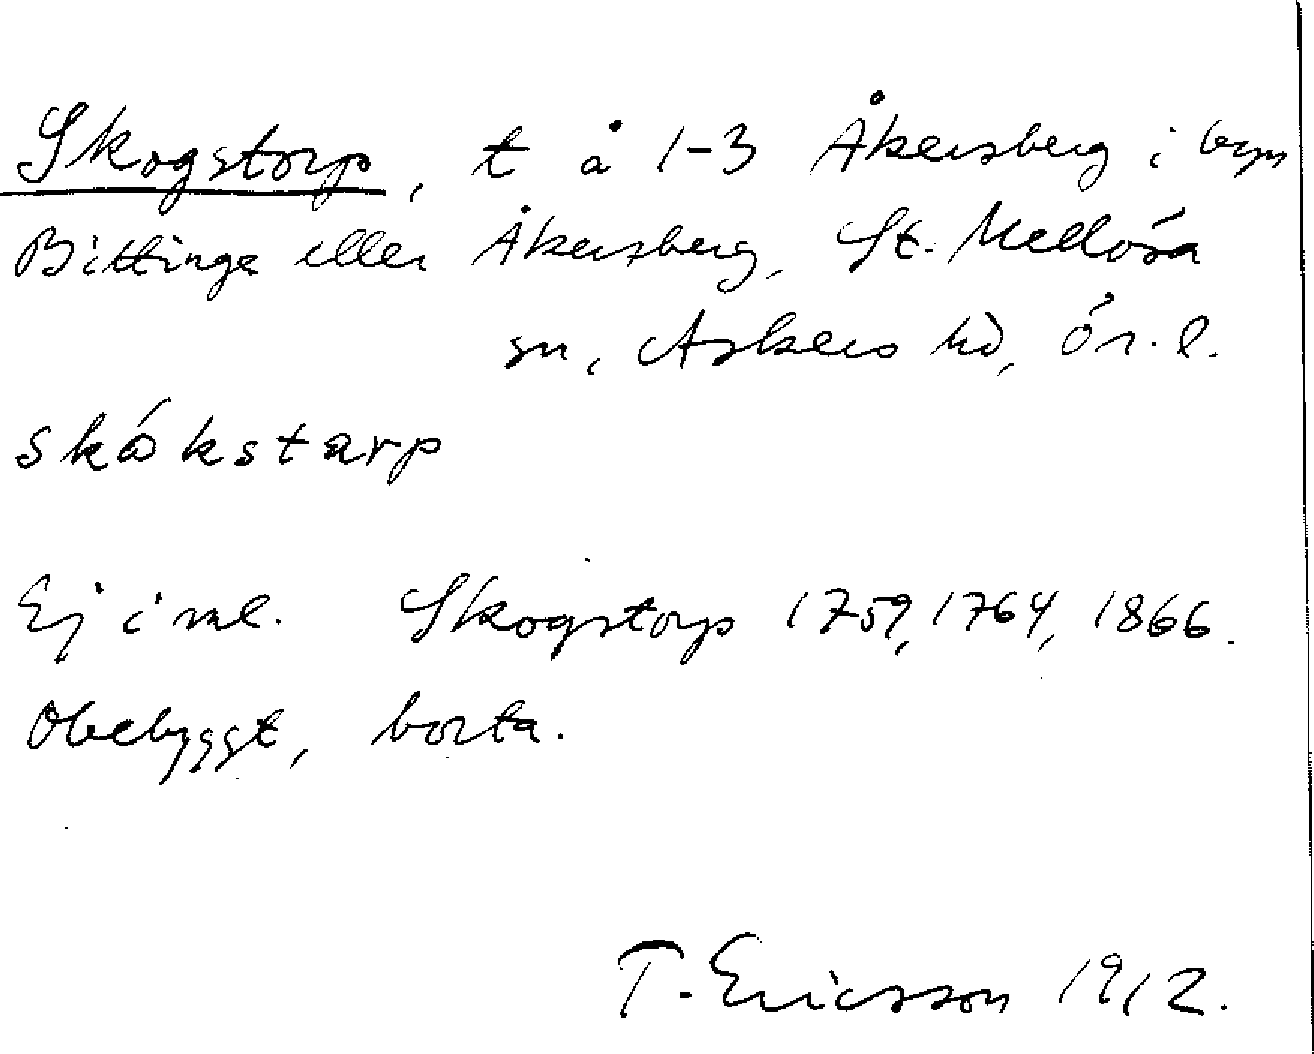 Skogstorp, t å 1-3 Åkersberg i byn
Bittinge eller Åkersberg, St. Mellösa
sn, Askers hd, Ör. l.
skókstarp
Ej i ml. Skogstorp 1759, 1764, 1866.
Obebyggt, borta.
T. Ericsson 1912.